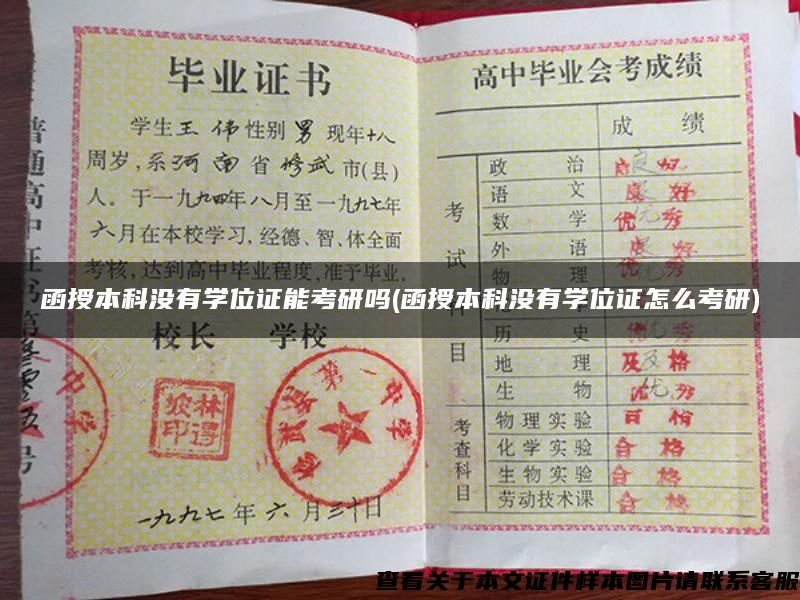 毕业证书
学生王 伟性别 男 现年十八
周岁,系河 南 省 修武 市(县)
人。于一九九四年八月至一九九七年
六月在本校学习,经德、智、体全面
考核,达到高中毕业程度,准予毕业。
校长 学校
一九九七年六月三十日
普通高中证书第
号
高中毕业会考成绩
成 绩
考试科目
政 治 良好
语 文 良好
数 学 优秀
外 语 良好
物 理
历 史 优
地 理 及格
生 物 优秀
考查科目
物理实验 合格
化学实验 合格
生物实验 合格
劳动技术课 合格
函授本科没有学位证能考研吗(函授本科没有学位证怎么考研)
查看关于本文证件样本图片请联系客服